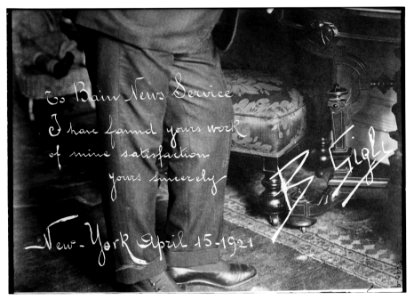 To Bain News Service
I have found yours work
of mine satisfaction
yours sincerely
B. Gigli
New-York April 15-1921